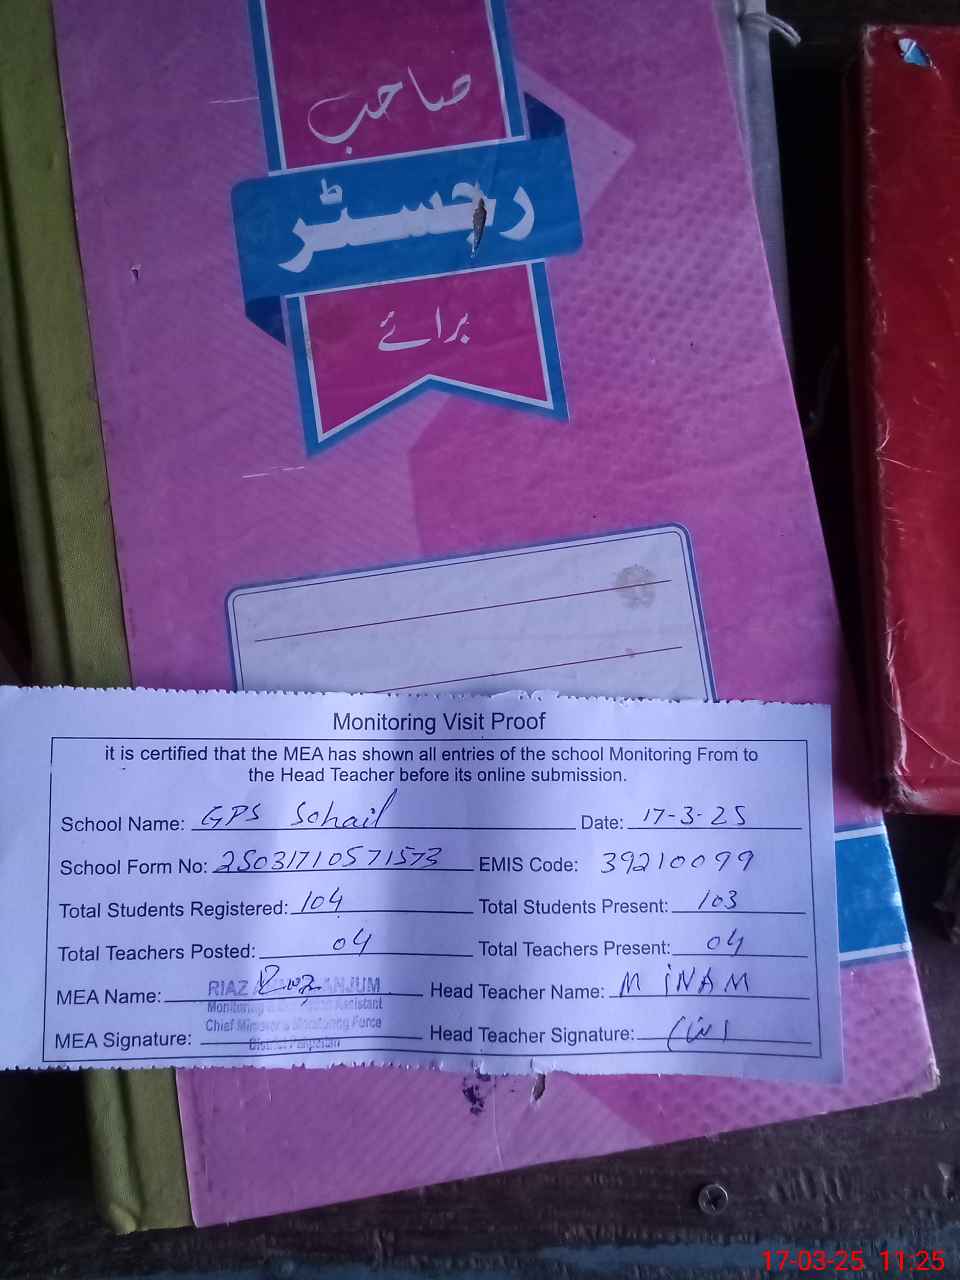 صاحب
رجسٹر
برائے
Monitoring Visit Proof
it is certified that the MEA has shown all entries of the school Monitoring From to
the Head Teacher before its online submission.
School Name: GPS Sohail Date: 17-3-25
School Form No: 25031710571573 EMIS Code: 39210099
Total Students Registered: 104 Total Students Present: 103
Total Teachers Posted: 04 Total Teachers Present: 04
MEA Name: RIAZ ANJUM Head Teacher Name: M iNAM
Monitoring & Assistant
Chief Minister's Monitoring Force
MEA Signature: Head Teacher Signature:
District
17-03-25 11:25